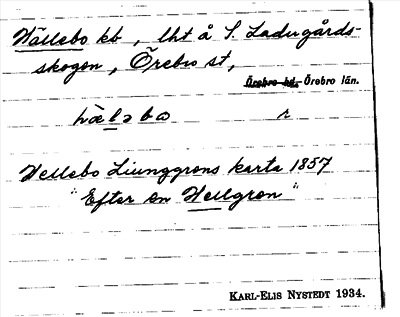 Wällebo kb, lht å S. Ladugårds-
skogen, Örebro st,
Örebro hd. Örebro län.
hæləba r
Wellebo Liunggrens karta 1857
"Efter en Wellgren"
KARL-ELIS NYSTEDT 1934.